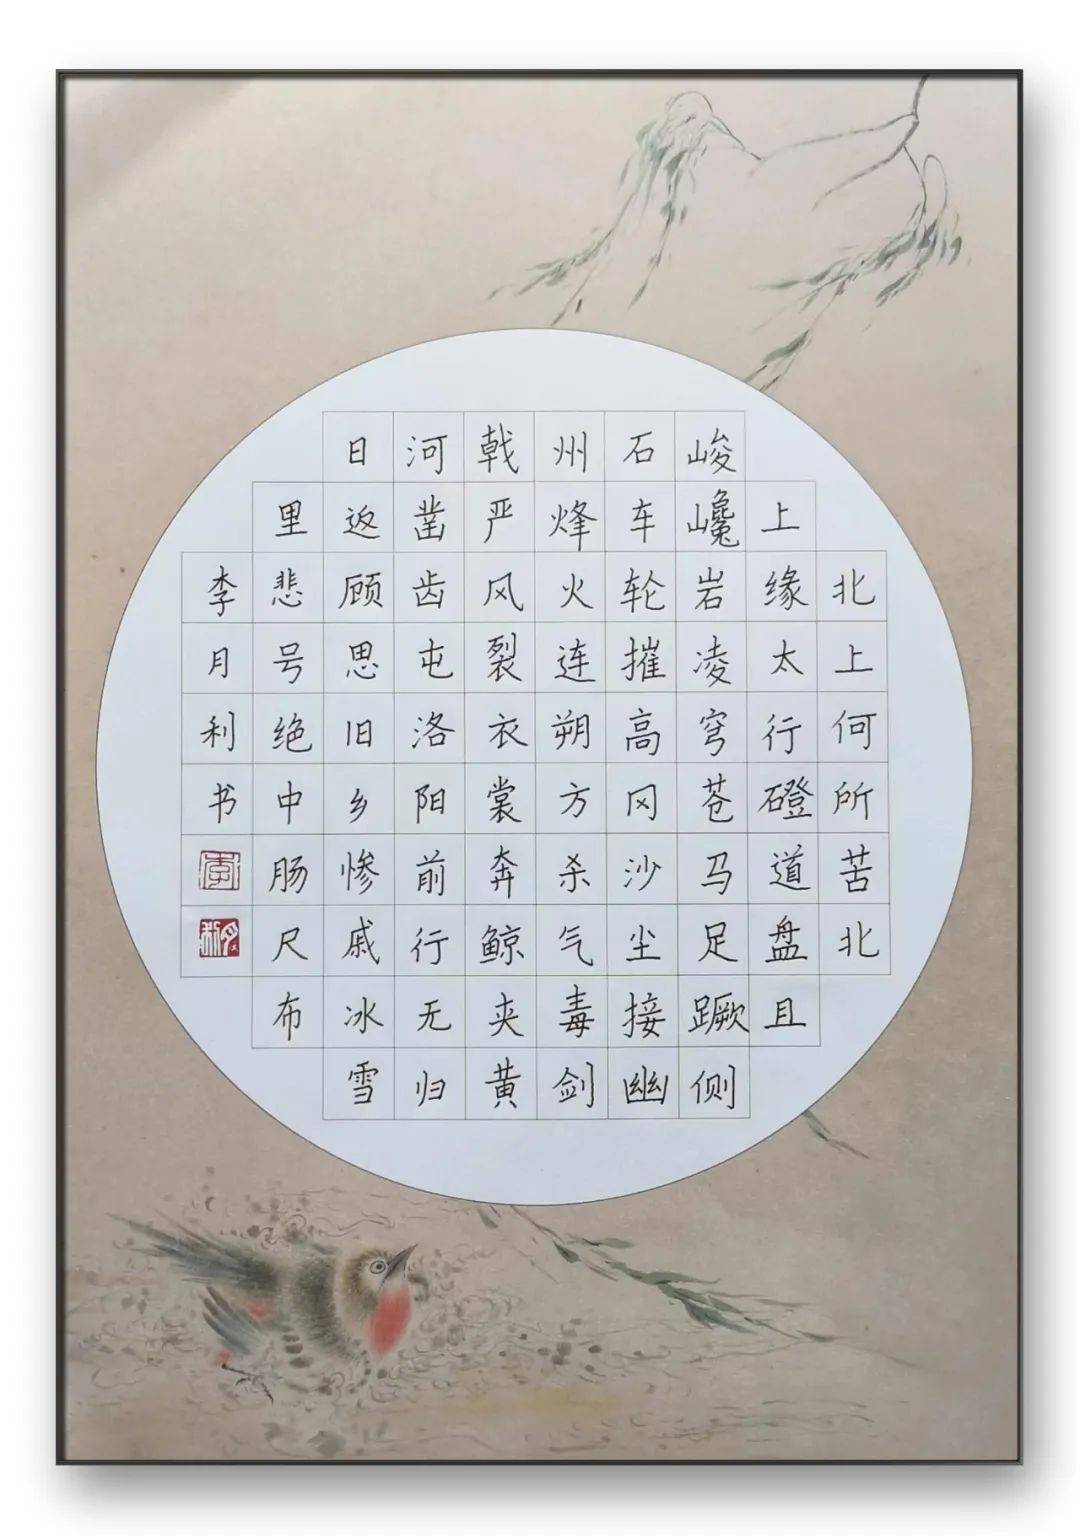 北上何所苦北
上缘太行磴道盘且
峻巉岩凌穹苍马足蹶侧
石车轮摧高冈沙尘接幽
州烽火连朔方杀气毒剑
戟严风裂衣裳奔鲸夹黄
河凿齿屯洛阳前行无归
日返顾思旧乡惨戚冰雪
里悲号绝中肠尺布
李月利书
李
月利